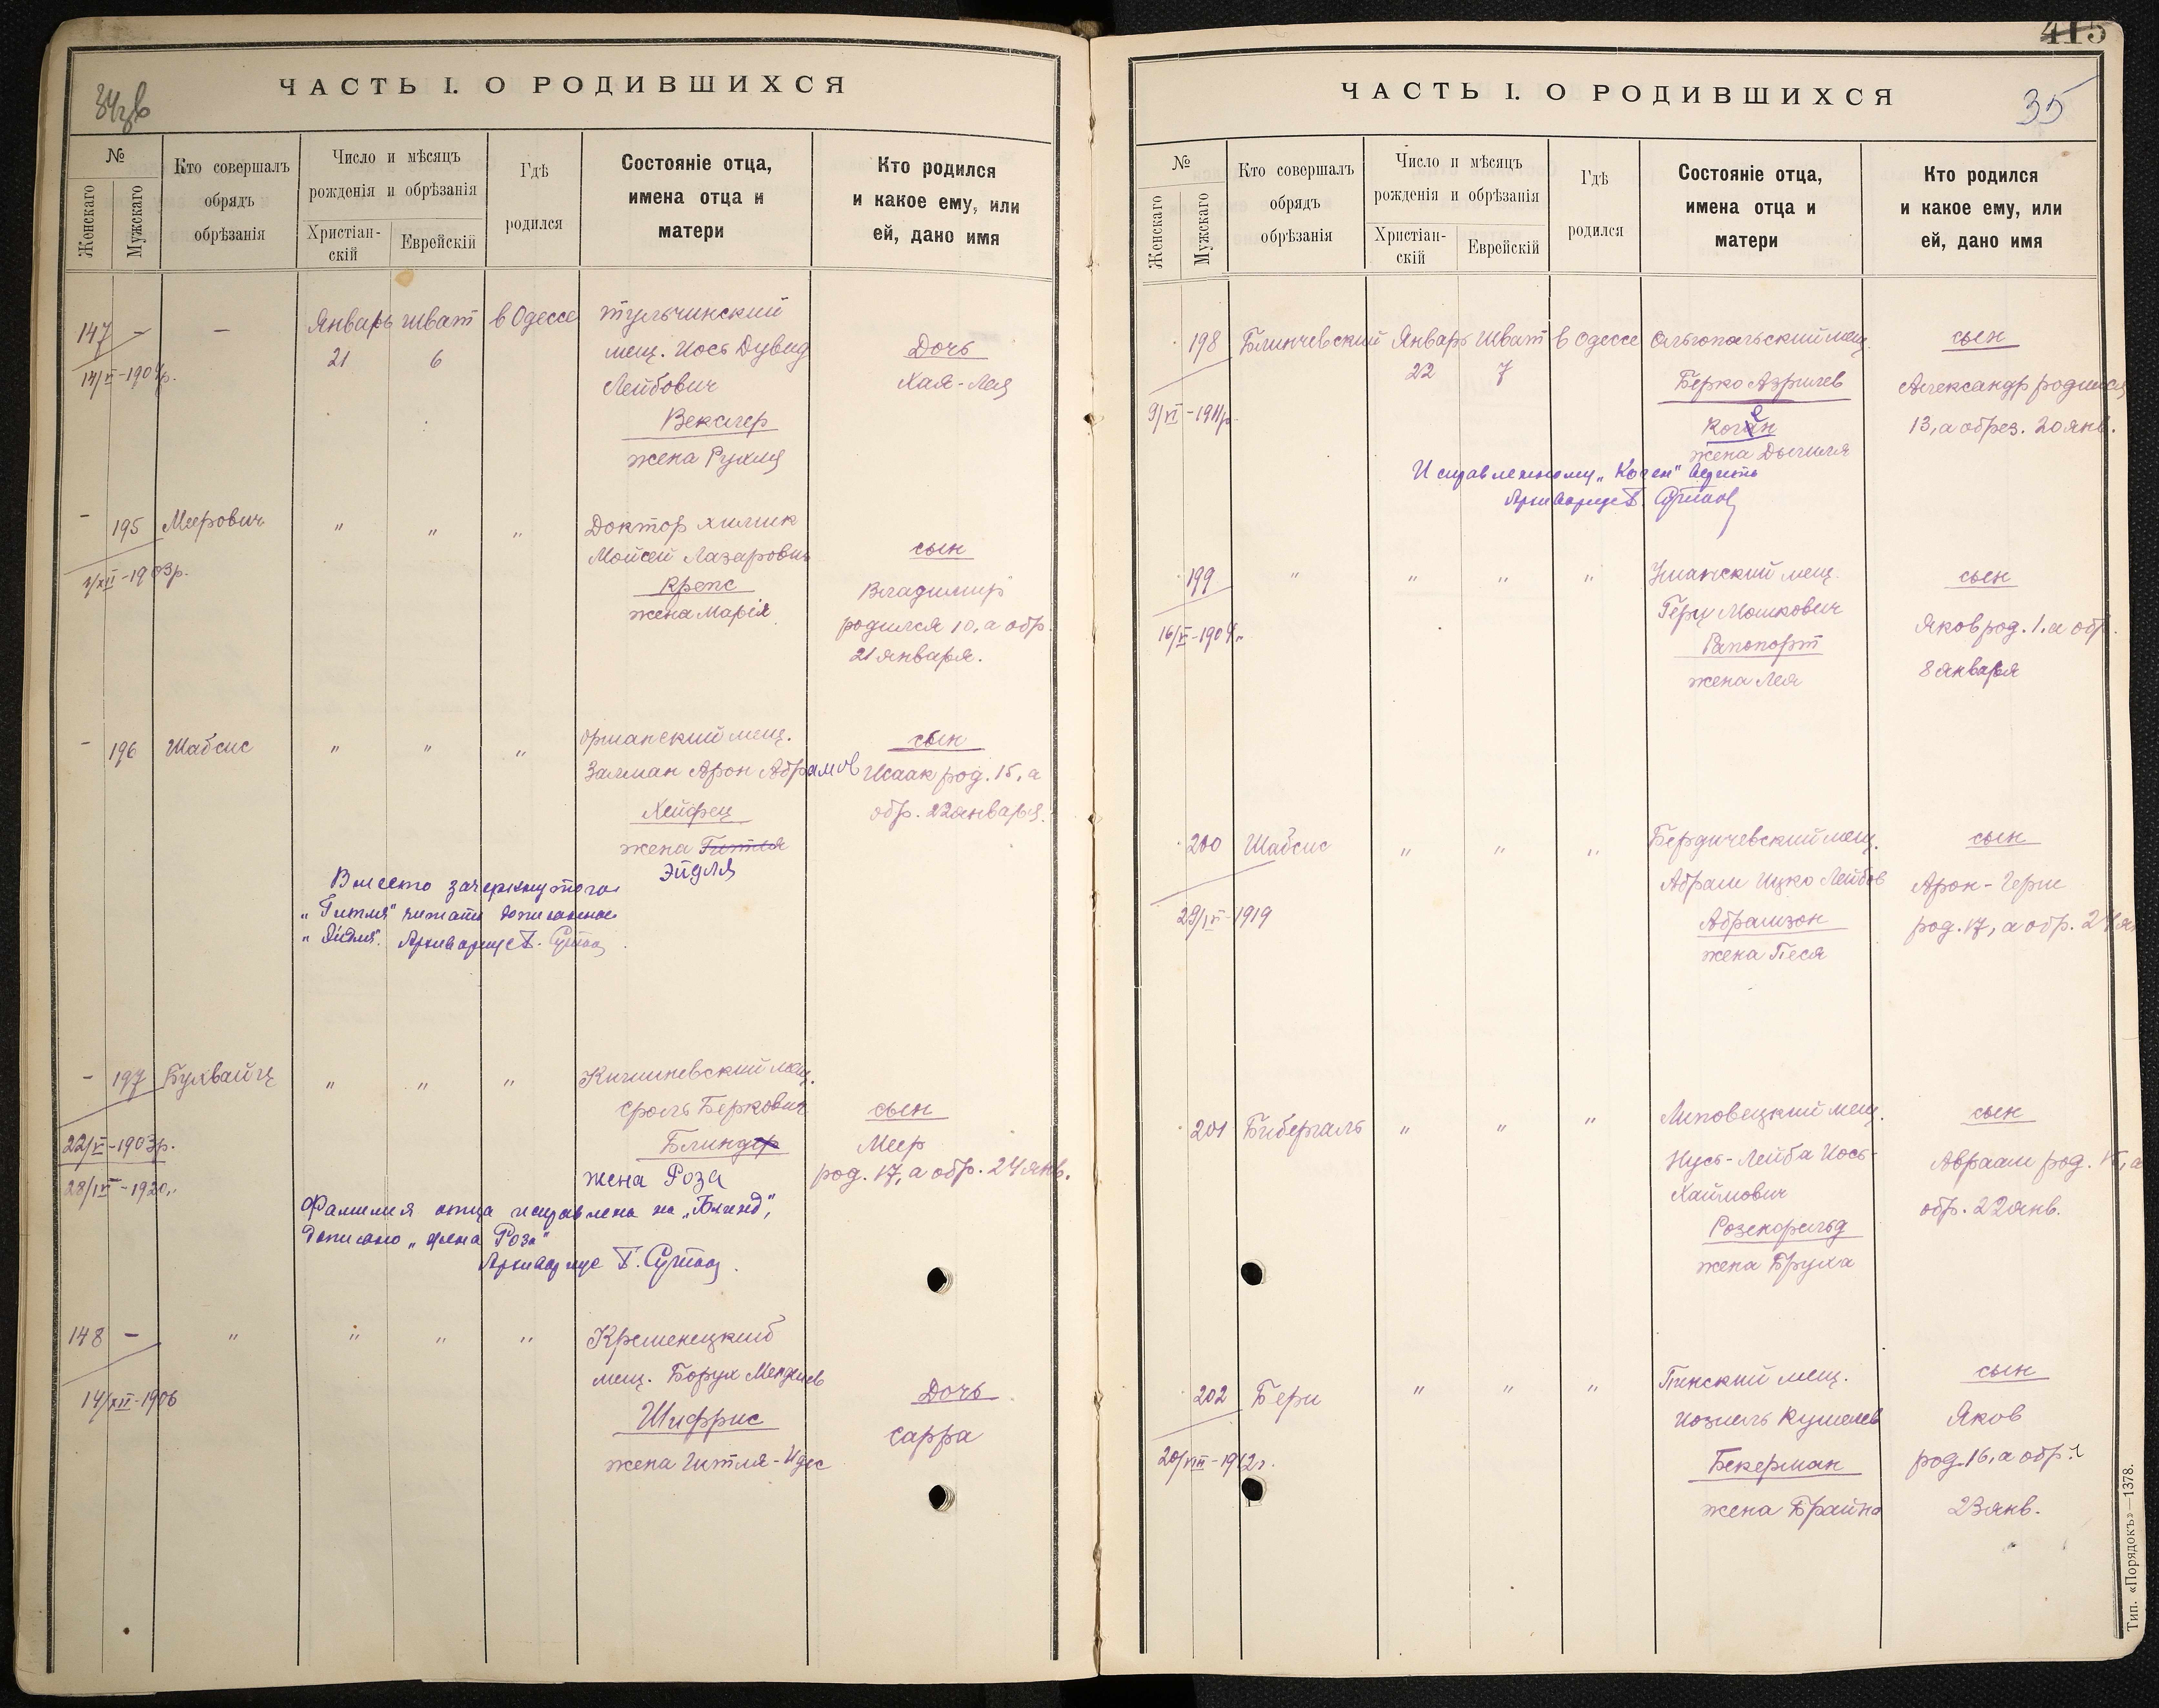 34зв
ЧАСТЬ I. О РОДИВШИХСЯ
№
Женскаго
Мужскаго
Кто совершалъ
обрядъ
обрѣзанія
Число и мѣсяцъ
рожденія и обрѣзанія
Христіан-
скій
Еврейскій
Гдѣ
родился
Состояніе отца,
имена отца и
матери
Кто родился
и какое ему, или
ей, дано имя
147 — — Январь Шват в Одессе тульчинский
21 6 мещ. Иось Дувид Дочь
14/VI-1904р. Лейбович Хая-Лея
Векслер
жена Рухля
- 195 Меерович " " " Доктор химик
Мойсей Лазарович сын
/XII-1903р. Крепс Владимир
жена Марія родился 10, а обр.
21 января.
- 196 Шабсис " " " оршанский мещ. сын
Залман Арон Абрамов Исаак род. 15, а
Хейфец обр. 22 января.
жена Гитля
Эйдля
Вместо зачеркнутого
"Гитля" читать дописанное
"Эйдля". Архивариус
- 197 Бухвайц " " " Кишиневский мещ.
Сроль Беркович сын
22/VI-1903р. Блиндер Меер
28/IV-1920 жена Роза род. 17, а обр. 24 янв.
Фамилия отца исправлена на "Блинд",
дописано "жена Роза"
Архивариус
148 — " " " " Кременецкий
мещ. Борух Менделев Дочь
14/XII-1906 Шифрис Сарра
жена Гитля-Идес
415
35
ЧАСТЬ I. О РОДИВШИХСЯ
№
Женскаго
Мужскаго
Кто совершалъ
обрядъ
обрѣзанія
Число и мѣсяцъ
рожденія и обрѣзанія
Христіан-
скій
Еврейскій
Гдѣ
родился
Состояніе отца,
имена отца и
матери
Кто родился
и какое ему, или
ей, дано имя
198 Блинчевский Январь Шват в Одессе Ольгопольский мещ. сын
22 7 Берко Азрилев Александр родился
9/XI-1911р. Коган 13, а обрез. 20 янв.
е
жена Дыхля
Исправленному "Коген" верить
Архивариус
199 " " " " Уманский мещ. сын
Герш Мошкович Яков род. 1, а обр.
16/V-1904 Рапопорт 8 января
жена Лея
200 Шабсис " " " Бердичевский мещ. сын
Абрам Ицко Лейбов Арон-Герш
29/IV-1919 Абрамзон род. 17, а обр. 24 ян
жена Песя
201 Бибергаль " " " Липовецкий мещ. сын
Нусь-Лейба Иось- Авраам род. 15, а
Хаймович обр. 22 янв.
Розенфельд
жена Бруха
202 Бери " " " Пинский мещ. сын
Иоэль Кушелев Яков
20/VIII-1912г. Бекерман род. 16, а обр.
жена Брайна 23 янв.
Тип. «Порядокъ»—1378.